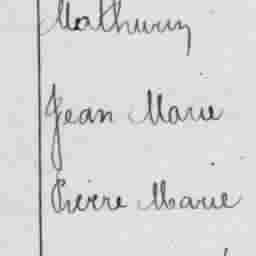 Mathurin
Jean Marie
Pierre Marie